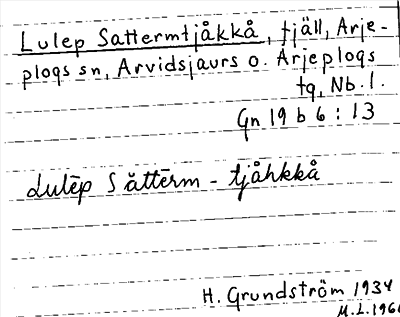 Lulep Sattermtjåkkå, fjäll, Arje-
plogs sn, Arvidsjaurs o. Arjeplogs
tg, Nb. l.
Gn 19 b 6 : 13
Lulēp Săttērm - tjåhkkå
H. Grundström 1934
M.L. 1966